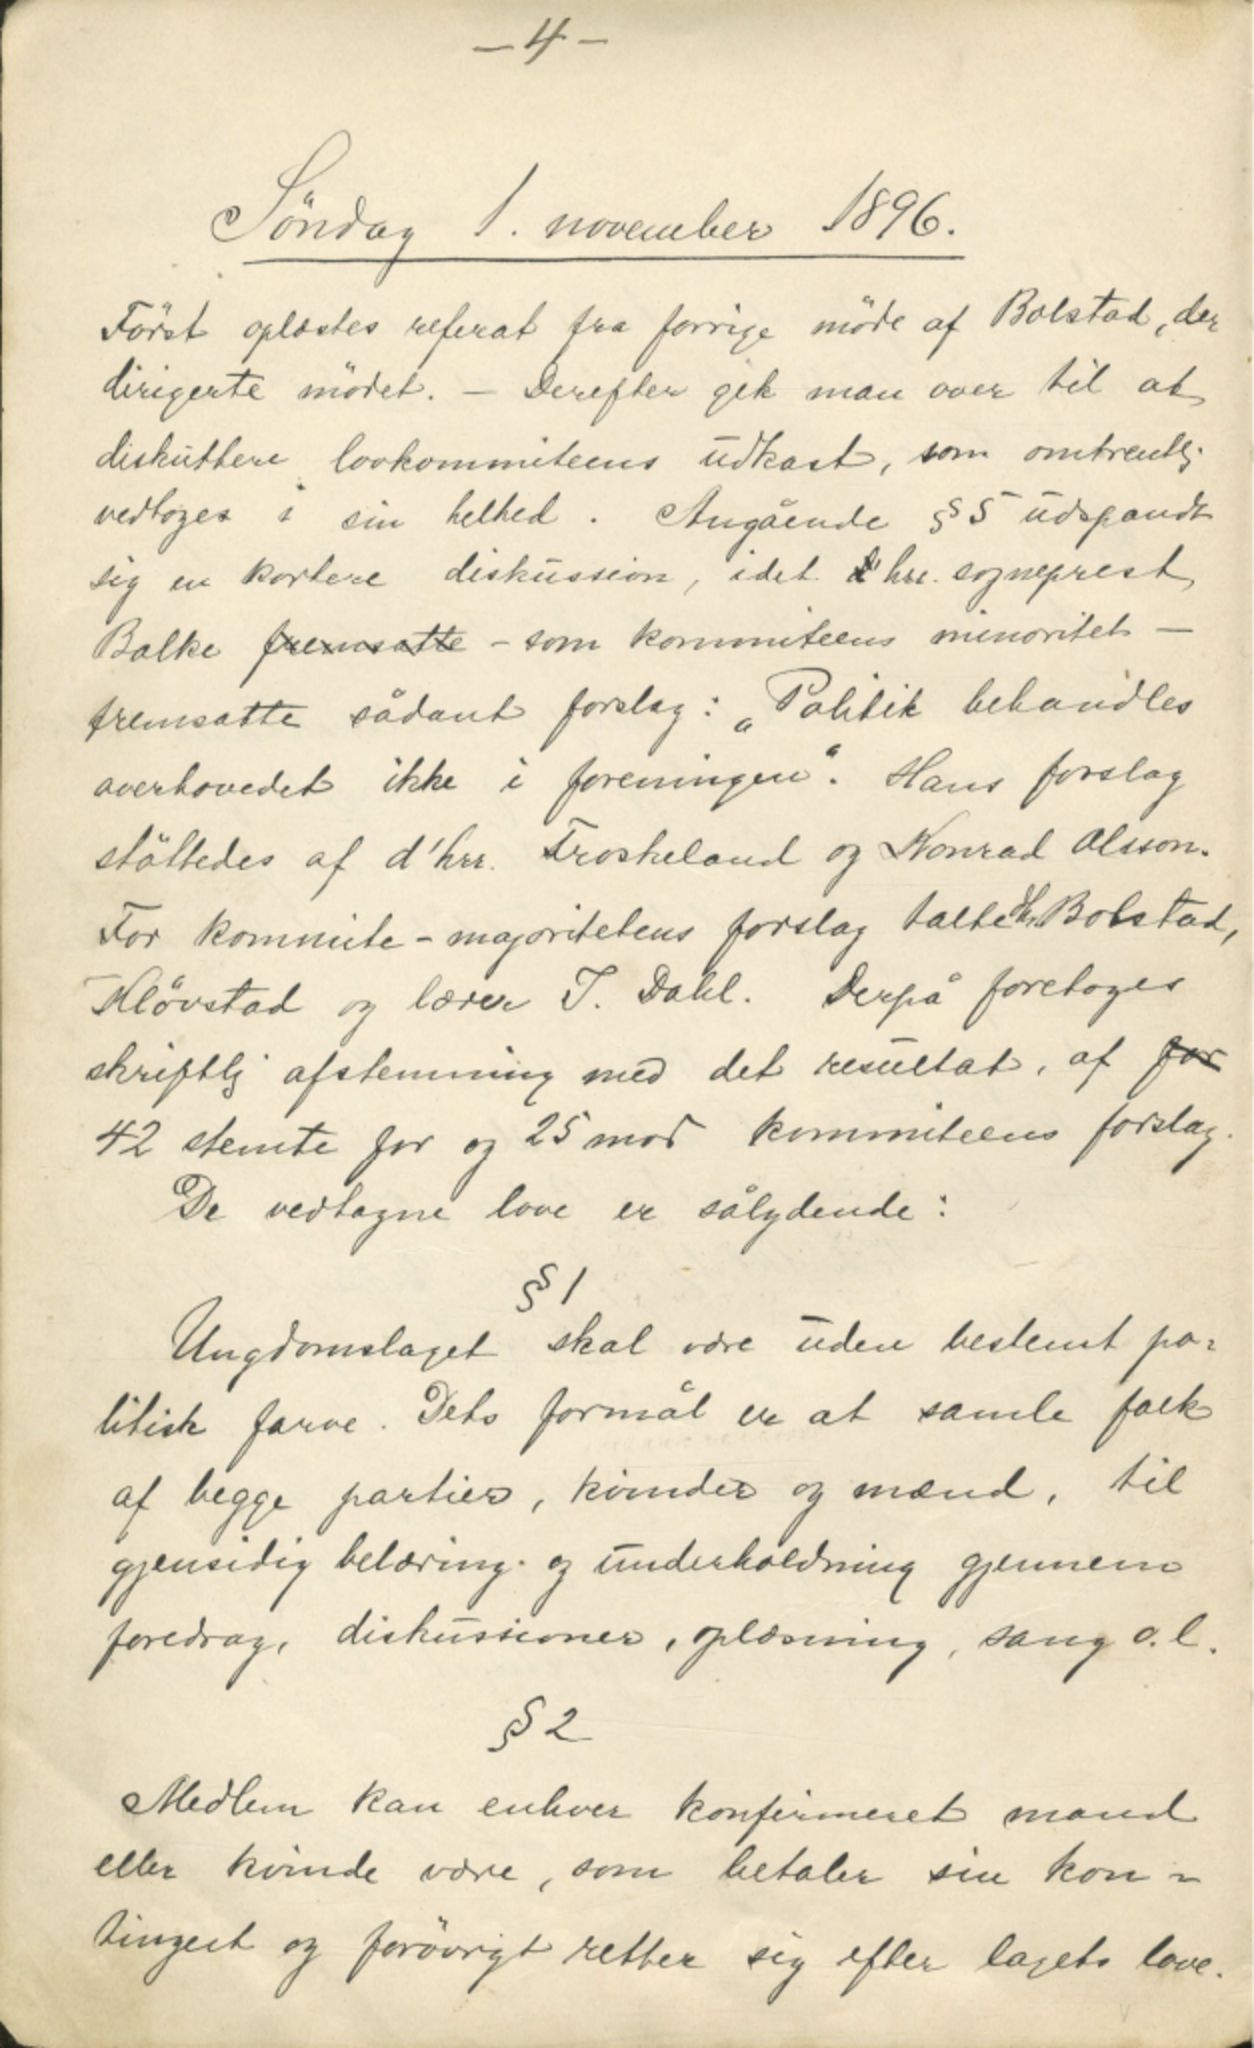 – 4 –
Söndag 1. november 1896.
Först oplæstes referat fra forrige möde af Bolstad, der
dirigerte mödet. – Derefter gik man over til at
diskuttere lovkommiteens udkast, som omtrentlj
vedtoges i sin helhed. Angående § 5 udspandt
sig en kortere diskussion, idet hrr. sogneprest
Balke fremsatte – som kommiteens minoritet –
fremsatte sådant forslag: „Politik behandles
overhovedet ikke i foreningen“. Hans forslag
stöttedes af d'hrr. Froskeland og Konrad Olsson.
For kommite-majoritetens forslag talte Hr. Bolstad,
Klövstad og lærer J. Dahl. Derpå foretoges
skriftlj afstemning med det resultat, af for
42 stemte for og 25 mod kommiteens forslag.
De vedtagne love er sålydende:
§ 1
Ungdomslaget skal være uden bestemt po-
litisk farve. Dets formål er at samle folk
af begge partier, kvinder og mænd, til
gjensidig belæring og underholdning gjennem
foredrag, diskussioner, oplæsning, sang o.l.
§ 2
Medlem kan enhver konfirmeret mand
eller kvinde være, som betaler sin kon-
tingent og forövrigt retter sig efter lagets love.